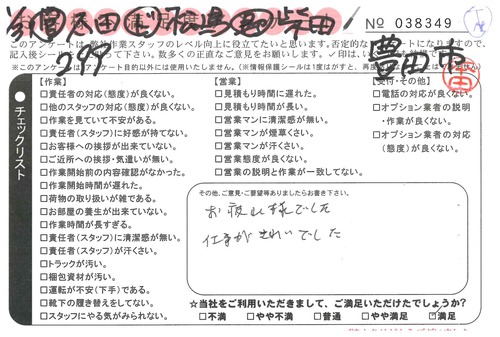 No 038349
豊田市
299
このアンケートは弊社作業スタッフのレベル向上に役立てたいと思います。否定的な
※このアンケートはアンケート目的以外には使用いたしません。
チェックリスト
【作業】
□責任者の対応(態度)が良くない。
□他のスタッフの対応(態度)が良くない。
□作業を見ていて不安がある。
□責任者(スタッフ)に好感が持てない。
□お客様への挨拶が出来ていない。
□ご近所への挨拶・気遣いが無い。
□作業開始前の内容確認がなかった。
□作業開始時間が遅れた。
□荷物の取り扱いが雑である。
□お部屋の養生が出来ていない。
□作業時間が長すぎる。
□責任者(スタッフ)に清潔感が無い。
□責任者(スタッフ)が汗くさい。
□トラックが汚い。
□梱包資材が汚い。
□運転が不安(下手)である。
□靴下の履き替えをしてない。
□スタッフにやる気がみられない。
【営業】
□見積もり時間に遅れた。
□見積もり時間が長い。
□営業マンに清潔感が無い。
□営業マンが煙草くさい。
□営業マンが汗くさい。
□営業態度が良くない。
□営業の説明と作業が一致してない。
【受付・その他】
□電話の対応が良くない。
□オプション業者の説明
・作業が良くない。
□オプション業者の対応
(態度)が良くない。
その他、ご意見・ご要望等ありましたらお書き下さい。
お疲れ様でした
仕事がきれいでした
☆当社をご利用いただきまして、ご満足いただけたでしょうか?
□不満 □やや不満 □普通 □やや満足 ☑満足